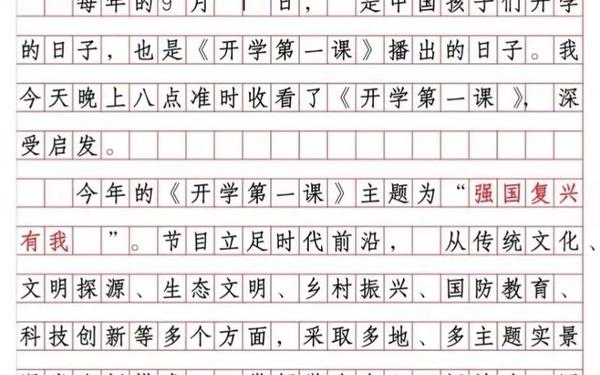 每年的9月1日，是中国孩子们开学
的日子，也是《开学第一课》播出的日子。我
今天晚上八点准时收看了《开学第一课》，深
受启发。
今年的《开学第一课》主题为“强国复兴
有我”。节目立足时代前沿，从传统文化、
文明探源、生态文明、乡村振兴、国防教育、
科技创新等多个方面，采取多地、多主题实景